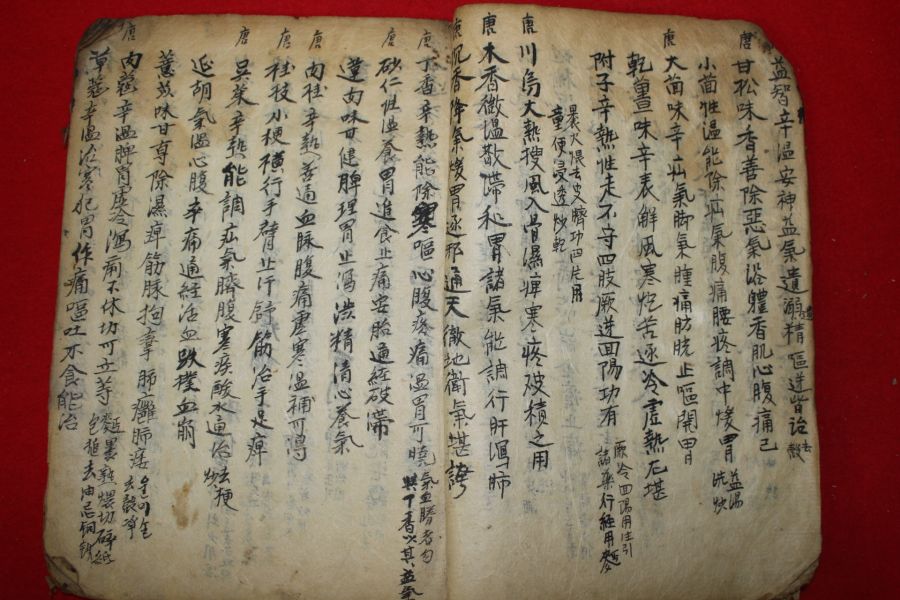 益智辛溫安神益氣遺溺精嘔逆皆治 去殼
唐 甘松味香善除惡氣浴體香肌心腹痛已
小茴性溫能除疝氣腹痛腰疼調中煖胃 鹽湯洗炒
唐 大茴味辛疝氣脚氣腫痛肪胱止嘔開胃
乾薑味辛表解風寒炮苦逐冷虛熱尤堪
附子辛熱性走不守四肢厥逆回陽功有 厥冷回陽用生引諸藥行經用
童便浸透炒乾
去皮臍
唐 川烏大熱搜風入骨濕痺寒疼破積之用
唐 木香微溫散滯和胃諸氣能調行肝瀉肺
唐 沉香降氣煖胃逐邪通天徹地衛氣堪誇
唐 丁香辛熱能除寒嘔心腹疼痛溫胃可曉 氣血勝者勿與丁香以其益氣
唐 砂仁性溫養胃進食止痛安胎通經破滯
蓮肉味甘健脾理胃止瀉澁精清心養氣
唐 肉桂辛熱善通血脉腹痛虛寒溫補可得
唐 桂枝小梗橫行手臂止汗舒筋治手足痺
唐 吳茱辛熱能調疝氣臍腹寒疼酸水通治 去梗炒
延胡氣溫心腹卒痛通經活血跌撲血崩
薏苡味甘專除濕痺筋脉拘攣肺癰肺痿
唐 肉蔲辛溫脾胃虛冷瀉痢不休功可立等
草蔲辛溫治寒犯胃作痛嘔吐不食能治